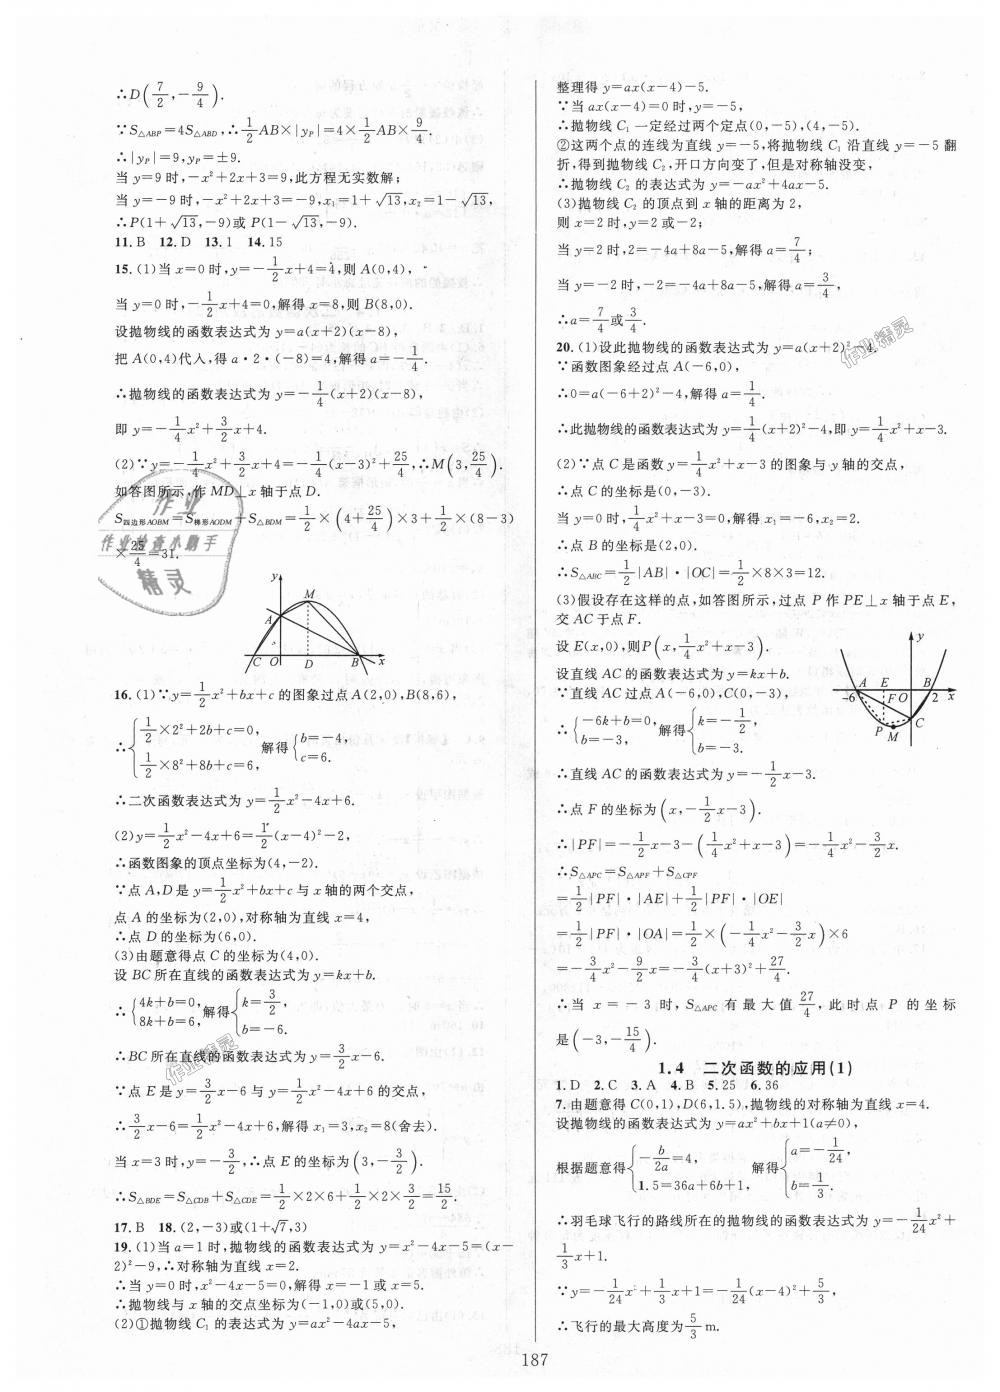 ∴D(7/2,-9/4).
∵S△ABP=4S△ABD,∴1/2AB×|yP|=4×1/2AB×9/4.
∴|yP|=9,yP=±9.
当y=9时,-x²+2x+3=9,此方程无实数解;
当y=-9时,-x²+2x+3=-9,x₁=1+√13,x₂=1-√13,
∴P(1+√13,-9)或P(1-√13,-9).
11.B 12.D 13.1 14.15
15.(1)当x=0时,y=-1/2x+4=4,则A(0,4),
当y=0时,-1/2x+4=0,解得x=8,则B(8,0).
设抛物线的函数表达式为y=a(x+2)(x-8),
把A(0,4)代入,得a·2·(-8)=4,解得a=-1/4.
∴抛物线的函数表达式为y=-1/4(x+2)(x-8),
即y=-1/4x²+3/2x+4.
(2)∵y=-1/4x²+3/2x+4=-1/4(x-3)²+25/4,∴M(3,25/4).
如答图所示,作MD⊥x轴于点D.
S四边形AOBM=S梯形AODM+S△BDM=1/2×(4+25/4)×3+1/2×(8-3)
×25/4=31.
y
M
A
C O D B x
16.(1)∵y=1/2x²+bx+c的图象过点A(2,0),B(8,6),
∴{1/2×2²+2b+c=0, 1/2×8²+8b+c=6, 解得{b=-4, c=6.
∴二次函数表达式为y=1/2x²-4x+6.
(2)y=1/2x²-4x+6=1/2(x-4)²-2,
∴函数图象的顶点坐标为(4,-2).
∵点A,D是y=1/2x²+bx+c与x轴的两个交点,
点A的坐标为(2,0),对称轴为直线x=4,
∴点D的坐标为(6,0).
(3)由题意得点C的坐标为(4,0).
设BC所在直线的函数表达式为y=kx+b.
∴{4k+b=0, 8k+b=6, 解得{k=3/2, b=-6.
∴BC所在直线的函数表达式为y=3/2x-6.
∵点E是y=3/2x-6与y=1/2x²-4x+6的交点,
∴3/2x-6=1/2x²-4x+6,解得x₁=3,x₂=8(舍去).
当x=3时,y=-3/2,∴点E的坐标为(3,-3/2).
∴S△BDE=S△CDB+S△CDE=1/2×2×6+1/2×2×3/2=15/2.
17.B 18.(2,-3)或(1+√7,3)
19.(1)当a=1时,抛物线的函数表达式为y=x²-4x-5=(x-
2)²-9,∴对称轴为直线x=2.
∴当y=0时,x²-4x-5=0,解得x=-1或x=5.
∴抛物线与x轴的交点坐标为(-1,0)或(5,0).
(2)①抛物线C₁的表达式为y=ax²-4ax-5,
整理得y=ax(x-4)-5.
∵当ax(x-4)=0时,y=-5,
∴抛物线C₁一定经过两个定点(0,-5),(4,-5).
②这两个点的连线为直线y=-5,将抛物线C₁沿直线y=-5翻
折,得到抛物线C₂,开口方向变了,但是对称轴没变,
∴抛物线C₂的表达式为y=-ax²+4ax-5.
(3)抛物线C₂的顶点到x轴的距离为2,
则x=2时,y=2或-2;
当y=2时,2=-4a+8a-5,解得a=7/4;
当y=-2时,-2=-4a+8a-5,解得a=3/4,
∴a=7/4或3/4.
20.(1)设此抛物线的函数表达式为y=a(x+2)²-4.
∵函数图象经过点A(-6,0),
∴0=a(-6+2)²-4,解得a=1/4.
∴此抛物线的函数表达式为y=1/4(x+2)²-4,即y=1/4x²+x-3.
(2)∵点C是函数y=1/4x²+x-3的图象与y轴的交点,
∴点C的坐标是(0,-3).
当y=0时,1/4x²+x-3=0,解得x₁=-6,x₂=2.
∴点B的坐标是(2,0).
∴S△ABC=1/2|AB|·|OC|=1/2×8×3=12.
(3)假设存在这样的点,如答图所示,过点P作PE⊥x轴于点E,
交AC于点F.
设E(x,0),则P(x,1/4x²+x-3).
设直线AC的函数表达式为y=kx+b.
∵直线AC过点A(-6,0),C(0,-3),
∴{-6k+b=0, b=-3, 解得{k=-1/2, b=-3.
∴直线AC的函数表达式为y=-1/2x-3.
y
A E B
-6 F O 2 x
C
P M
∴点F的坐标为(x,-1/2x-3).
∴|PF|=-1/2x-3-(1/4x²+x-3)=-1/4x²-3/2x.
∴S△APC=S△APF+S△CPF
=1/2|PF|·|AE|+1/2|PF|·|OE|
=1/2|PF|·|OA|=1/2×(-1/4x²-3/2x)×6
=-3/4x²-9/2x=-3/4(x+3)²+27/4.
∴当x=-3时,S△APC有最大值27/4,此时点P的坐标
是(-3,-15/4).
1.4 二次函数的应用(1)
1.D 2.C 3.A 4.B 5.25 6.36
7.由题意得C(0,1),D(6,1.5),抛物线的对称轴为直线x=4.
设抛物线的函数表达式为y=ax²+bx+1(a≠0),
根据题意得{-b/2a=4, 1.5=36a+6b+1, 解得{a=-1/24, b=1/3.
∴羽毛球飞行的路线所在的抛物线的函数表达式为y=-1/24x²+
1/3x+1.
∵y=-1/24x²+1/3x+1=-1/24(x-4)²+5/3,
∴飞行的最大高度为5/3m.
187
作业
作业检查小助手
精灵
作业精灵
作业精灵